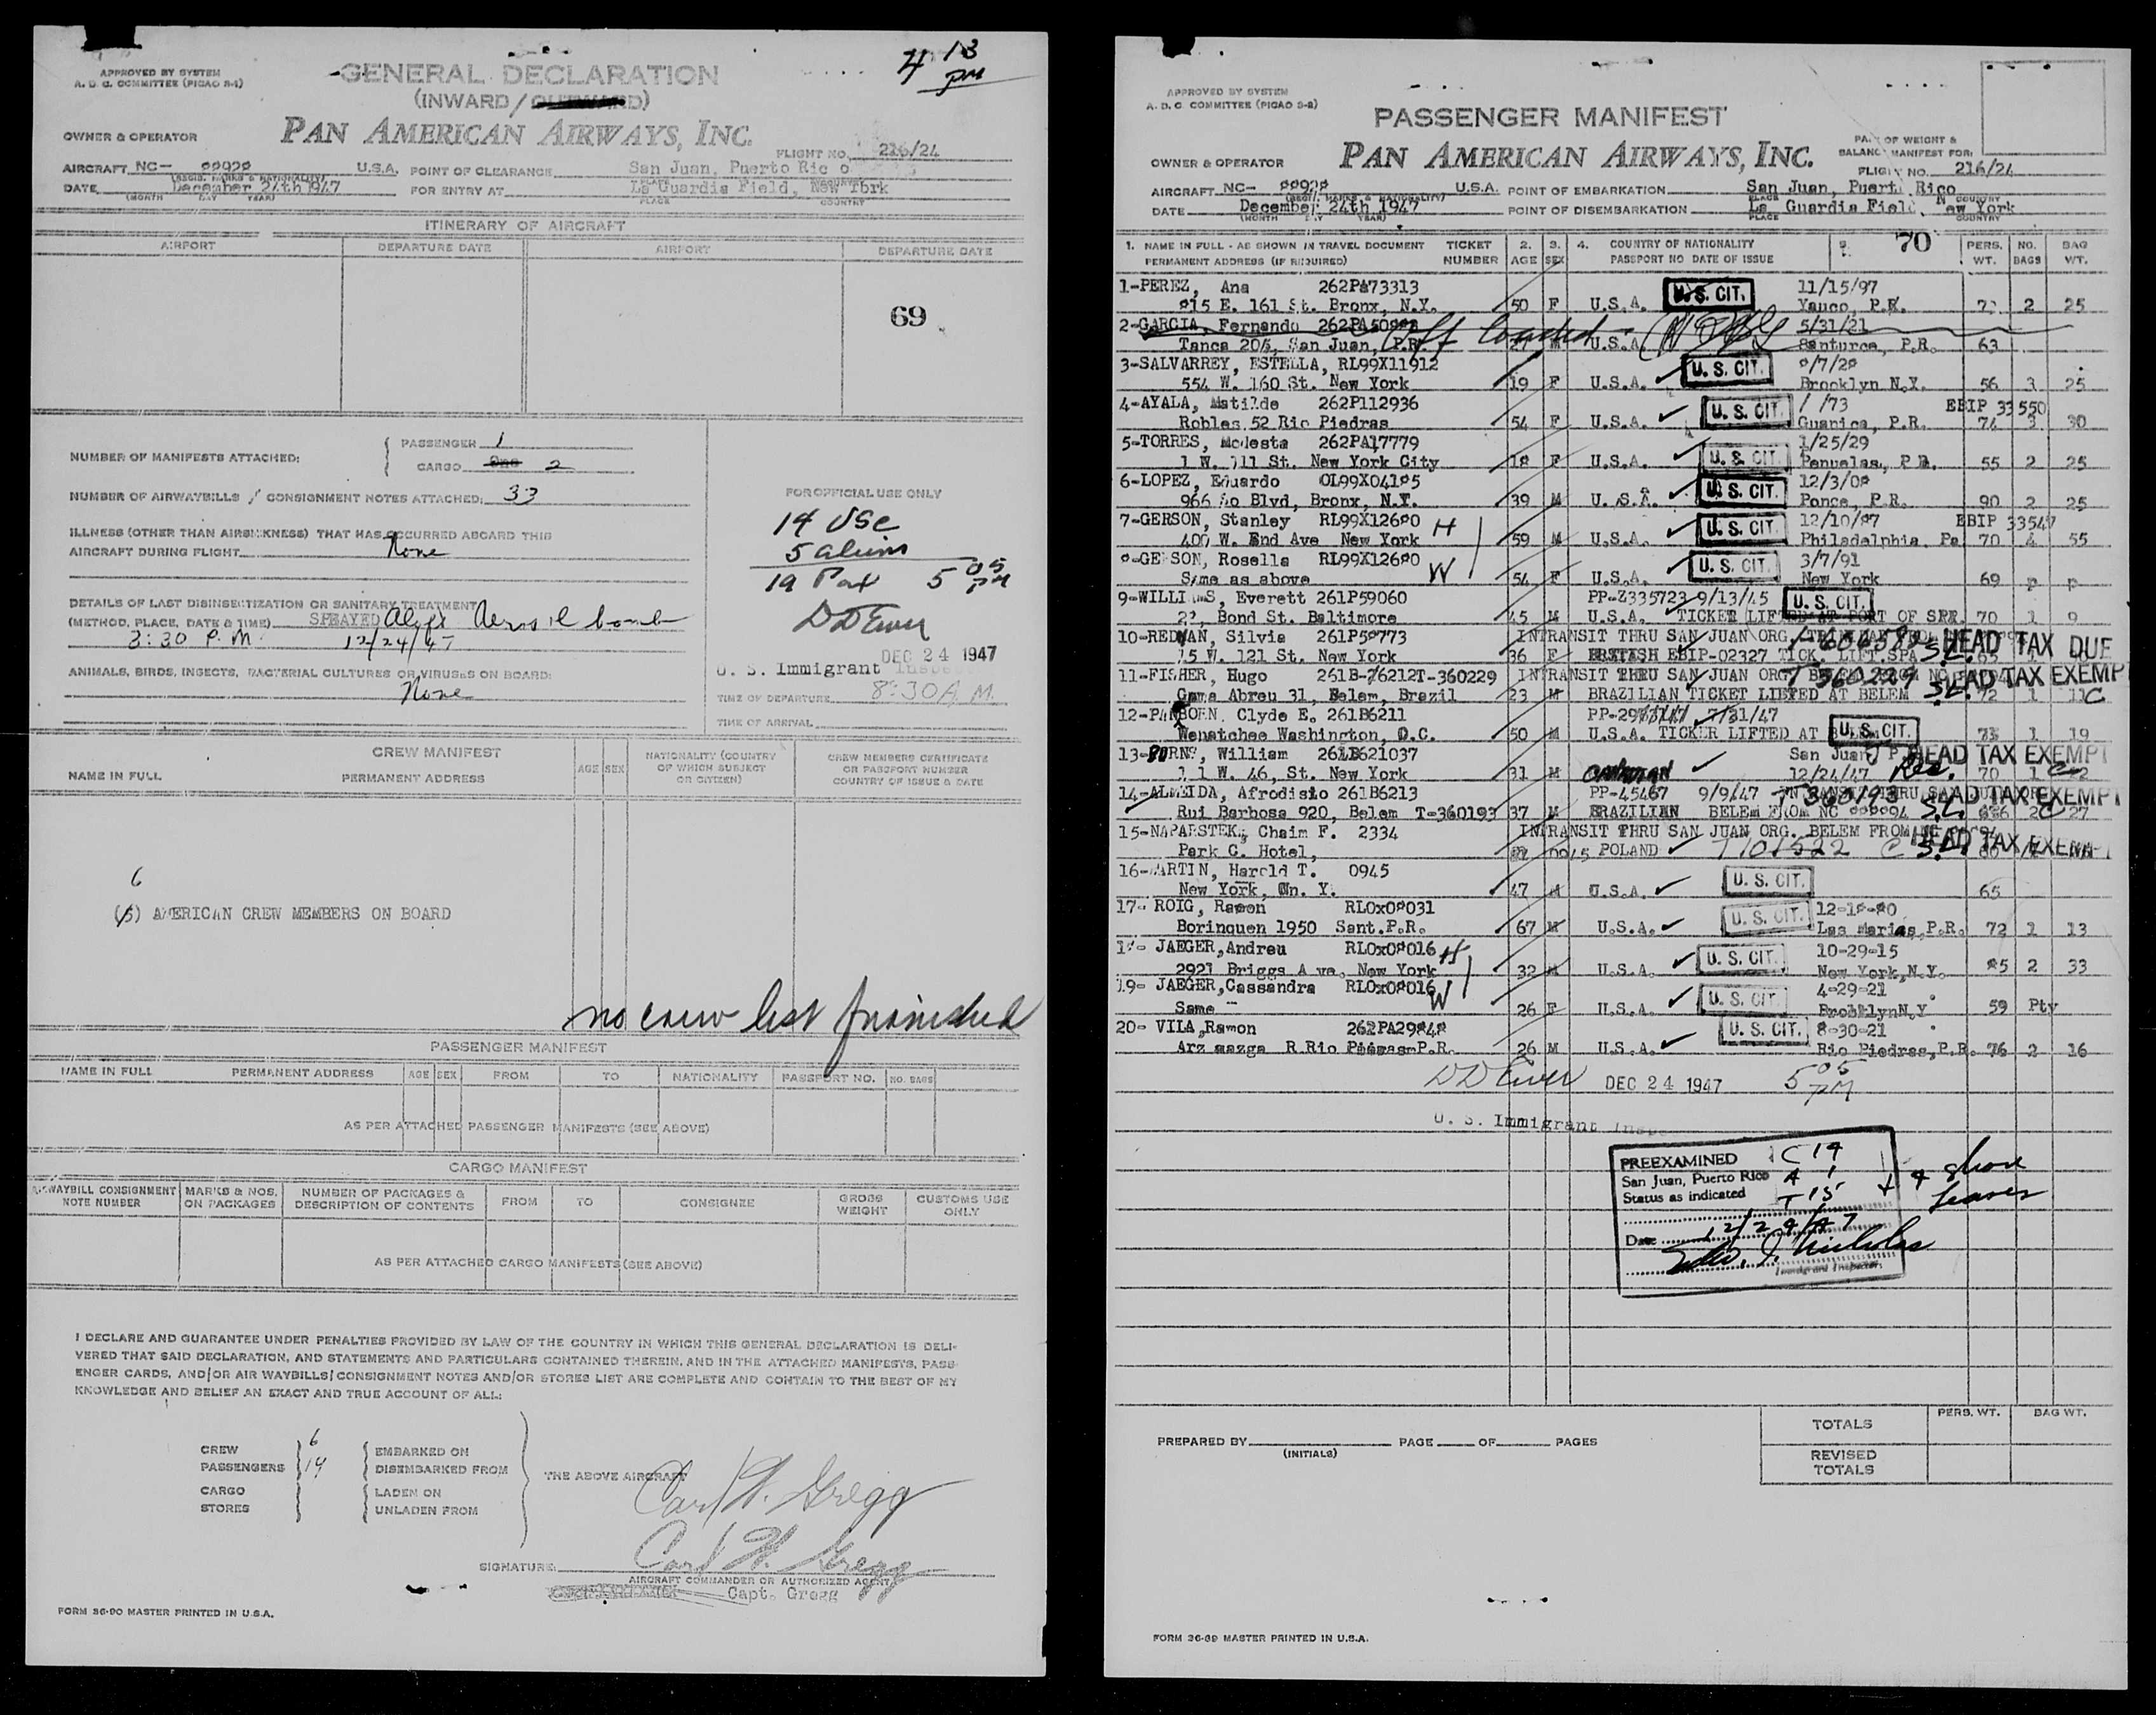 4 13 PM
APPROVED BY SYSTEM
A. D. C. COMMITTEE (PICAO S-1)
GENERAL DECLARATION
(INWARD / OUTWARD)
OWNER & OPERATOR
PAN AMERICAN AIRWAYS, INC.
FLIGHT NO. 216/24
AIRCRAFT NC- 88928 U.S.A. POINT OF CLEARANCE San Juan, Puerto Ric o
(REGIS. MARKS & NATIONALITY) PLACE COUNTRY
DATE December 24th 1947 FOR ENTRY AT La Guardia Field, New York
(MONTH DAY YEAR) PLACE COUNTRY
ITINERARY OF AIRCRAFT
AIRPORT DEPARTURE DATE AIRPORT DEPARTURE DATE
69
NUMBER OF MANIFESTS ATTACHED: PASSENGER 1
CARGO One 2
NUMBER OF AIRWAYBILLS / CONSIGNMENT NOTES ATTACHED: 33
ILLNESS (OTHER THAN AIRSICKNESS) THAT HAS OCCURRED ABOARD THIS
AIRCRAFT DURING FLIGHT None
DETAILS OF LAST DISINSECTIZATION OR SANITARY TREATMENT
(METHOD, PLACE, DATE & TIME) SPRAYED Aloft Aerosil bomb
3:30 P.M. 12/24/47
ANIMALS, BIRDS, INSECTS, BACTERIAL CULTURES OR VIRUSES ON BOARD:
None
FOR OFFICIAL USE ONLY
14 USC
5 aliens
19 Pax 5 05 PM
D D Ewer
DEC 24 1947
U. S. Immigrant Inspector
TIME OF DEPARTURE 8:30 A.M.
TIME OF ARRIVAL
CREW MANIFEST
NAME IN FULL PERMANENT ADDRESS AGE SEX NATIONALITY (COUNTRY OF WHICH SUBJECT OR CITIZEN) CREW MEMBERS CERTIFICATE OR PASSPORT NUMBER COUNTRY OF ISSUE & DATE
6
(5) AMERICAN CREW MEMBERS ON BOARD
no crew list furnished
PASSENGER MANIFEST
NAME IN FULL PERMANENT ADDRESS AGE SEX FROM TO NATIONALITY PASSPORT NO. NO. BAGS
AS PER ATTACHED PASSENGER MANIFESTS (SEE ABOVE)
CARGO MANIFEST
AIRWAYBILL CONSIGNMENT NOTE NUMBER MARKS & NOS. ON PACKAGES NUMBER OF PACKAGES & DESCRIPTION OF CONTENTS FROM TO CONSIGNEE GROSS WEIGHT CUSTOMS USE ONLY
AS PER ATTACHED CARGO MANIFESTS (SEE ABOVE)
I DECLARE AND GUARANTEE UNDER PENALTIES PROVIDED BY LAW OF THE COUNTRY IN WHICH THIS GENERAL DECLARATION IS DELI-
VERED THAT SAID DECLARATION, AND STATEMENTS AND PARTICULARS CONTAINED THEREIN, AND IN THE ATTACHED MANIFESTS, PASS-
ENGER CARDS, AND/OR AIR WAYBILLS/CONSIGNMENT NOTES AND/OR STORES LIST ARE COMPLETE AND CONTAIN TO THE BEST OF MY
KNOWLEDGE AND BELIEF AN EXACT AND TRUE ACCOUNT OF ALL:
CREW 6 EMBARKED ON
PASSENGERS 19 DISEMBARKED FROM
THE ABOVE AIRCRAFT
CARGO LADEN ON
STORES UNLADEN FROM
Carl W. Gregg
SIGNATURE: Carl W. Gregg
AIRCRAFT COMMANDER OR AUTHORIZED AGENT
Capt. Gregg
FORM 36-90 MASTER PRINTED IN U.S.A.
APPROVED BY SYSTEM
A. D. C. COMMITTEE (PICAO S-2)
PASSENGER MANIFEST
PART OF WEIGHT &
BALANCE MANIFEST FOR:
OWNER & OPERATOR
PAN AMERICAN AIRWAYS, INC.
FLIGHT NO. 216/24
AIRCRAFT NC- 88928 U.S.A. POINT OF EMBARKATION San Juan, Puerto Rico
(REGIS. MARKS & NATIONALITY) PLACE COUNTRY
DATE December 24th 1947 POINT OF DISEMBARKATION La Guardia Field, New York
(MONTH DAY YEAR) PLACE COUNTRY
1. NAME IN FULL - AS SHOWN IN TRAVEL DOCUMENT TICKET 2. 3. 4. COUNTRY OF NATIONALITY 70 PERS. NO. BAG
PERMANENT ADDRESS (IF REQUIRED) NUMBER AGE SEX PASSPORT NO DATE OF ISSUE WT. BAGS WT.
1-PEREZ, Ana 262PA73313 U.S. CIT. 11/15/97
815 E. 161 St. Bronx, N.Y. 50 F U.S.A. Yauco, P.R. 2 25
2-GARCIA, Fernando Off loaded 5/31/21
Tanca 205, San Juan, P.R. 27 M U.S.A. Santurce, P.R. 63
3-SALVARREY, ESTELLA, RL99X11912 U. S. CIT. 8/7/28
554 W. 160 St. New York 19 F U.S.A. Brooklyn N.Y. 56 3 25
4-AYALA, Matilde 262P112936 U. S. CIT. / /73 EBIP 33550
Robles 52 Rio Piedras 54 F U.S.A. Guanica, P.R. 74 3 30
5-TORRES, Modesta 262PA17779 U. S. CIT. 1/25/29
1 W. 111 St. New York City 18 F U.S.A. Penuelas, P.R. 55 2 25
6-LOPEZ, Eduardo OL99X04185 U. S. CIT. 12/3/08
966 So Blvd, Bronx, N.Y. 39 M U.S.A. Ponce, P.R. 90 2 25
7-GERSON, Stanley RL99X12680 H U. S. CIT. 12/10/87 EBIP 33547
400 W. End Ave New York 59 M U.S.A. Philadelphia, Pa 70 4 55
8-GERSON, Rosella RL99X12680 W U. S. CIT. 3/7/91
Same as above 54 F U.S.A. New York 69 p p
9-WILLIAMS, Everett 261P59060 PP-Z335723 9/13/45 U. S. CIT.
22, Bond St. Baltimore 45 M U.S.A. TICKET LIFTED AT PORT OF SPR. 70 1 9
10-REDMAN, Silvia 261P58773 INTRANSIT THRU SAN JUAN ORG. HEAD TAX DUE
15 W. 121 St. New York 36 F BRITISH EBIP-02327 TICK. LIFT.SPA
11-FISHER, Hugo 261B-76212T-360229 INTRANSIT THRU SAN JUAN ORG. T 360229 HEAD TAX EXEMPT
Gama Abreu 31, Belem, Brazil 23 M BRAZILIAN TICKET LIFTED AT BELEM S.L. 72 1 11 C
12-PANGBORN, Clyde E. 261B6211 7/31/47
Wenatchee Washington, D.C. 50 M U.S.A. TICKER LIFTED AT U. S. CIT. 1 19
13-BURNS, William 261B621037 San Juan P HEAD TAX EXEMPT
1 1 W. 46, St. New York 31 M CANADIAN 12/24/47 Res. 70 1
14-ALMEIDA, Afrodisio 261B6213 PP-45467 9/9/47 IN TRANSIT THRU T 360193 HEAD TAX EXEMPT
Rui Barbosa 920, Belem T-360193 37 M BRAZILIAN BELEM FROM NC S.L. 2 C 27
15-NAPARSTEK, Chaim F. 2334 INTRANSIT THRU SAN JUAN ORG. BELEM FROM HEAD TAX EXEMPT
Park C. Hotel, POLAND T 101522 C S.L.
16-MARTIN, Harold T. 0945 U. S. CIT.
New York, N. Y. 47 M U.S.A. 65
17- ROIG, Ramon RL0x08031 U. S. CIT. 12-18-80
Borinquen 1950 Sant.P.R. 67 M U.S.A. Las Marias, P.R. 72 1 13
18- JAEGER, Andreu RL0x08016 H U. S. CIT. 10-29-15
2921 Briggs A ve. New York 32 M U.S.A. New York,N.Y. 85 2 33
19- JAEGER,Cassandra RL0x08016 W U. S. CIT. 4-29-21
Same 26 F U.S.A. BrooklynN.Y 59 Pty
20- VILA,Ramon 262PA29848 U. S. CIT. 8-30-21
R.Rio Piedras P.R. 26 M U.S.A. Rio Piedras,P.R. 76 2 16
D D Ewer DEC 24 1947 5 05 PM
U. S. Immigrant Inspector
PREEXAMINED C 14
San Juan, Puerto Rico A 1
Status as indicated T 15 + 4 shore leaves
Date 12/24/47
Immigrant Inspector
TOTALS PERS. WT. BAG WT.
PREPARED BY (INITIALS) PAGE OF PAGES
REVISED TOTALS
FORM 36-89 MASTER PRINTED IN U.S.A.